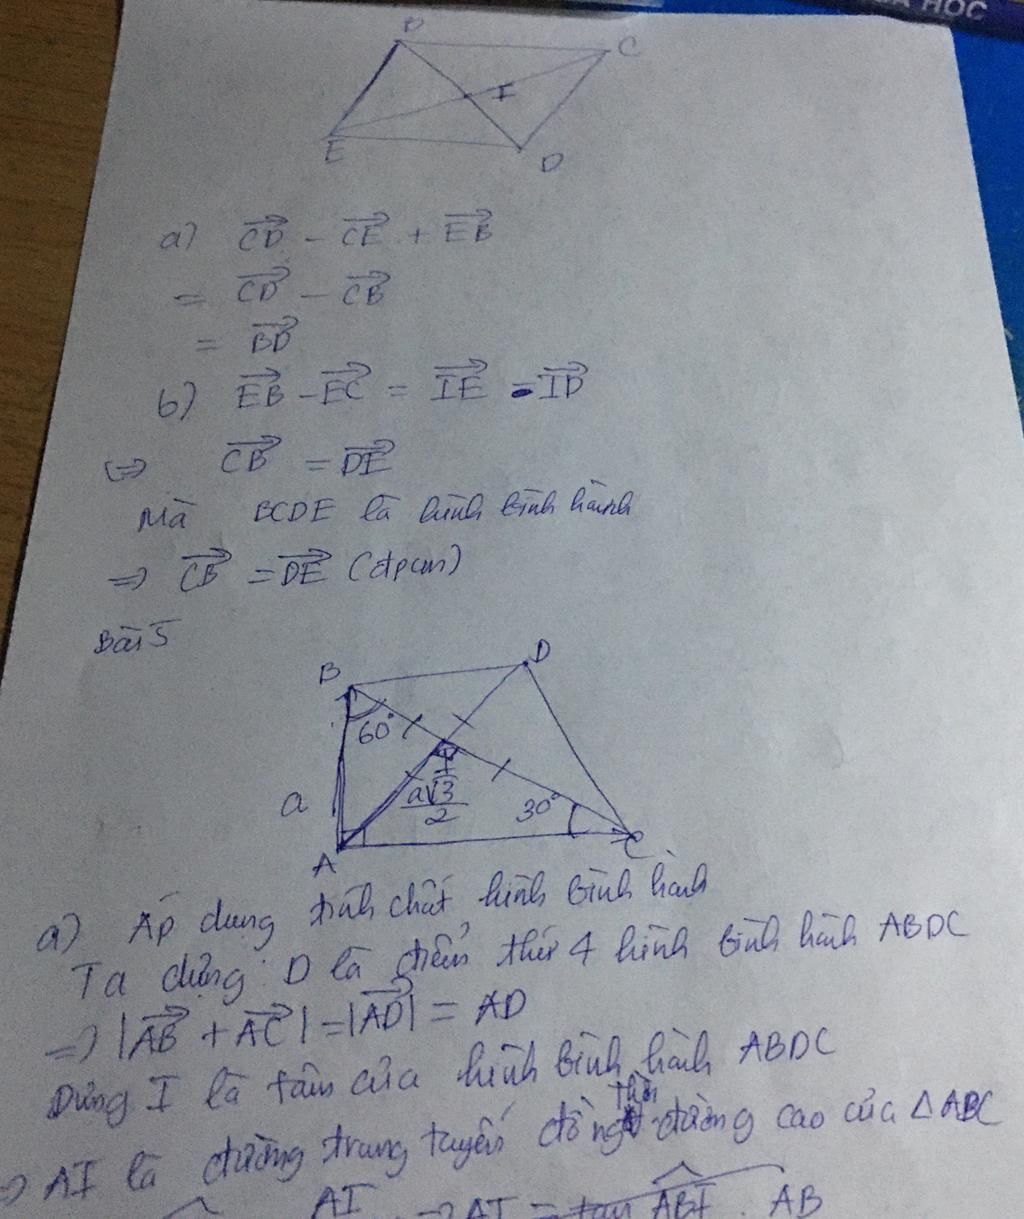 HỌC
B
C
I
E
D
a) CD→ - CE→ + EB→
= CD→ - CB→
= BD→
b) EB→ - EC→ = IE→ - ID→
⇔ CB→ = DE→
Mà BCDE là hình bình hành
=> CB→ = DE→ (đpcm)
Bài 5
B
D
60°
I
a
a√3/2
30°
A
C
a) Áp dụng tính chất hình bình hành
Ta dựng D là điểm thứ 4 hình bình hành ABDC
=> |AB→ + AC→| = |AD→| = AD
Dựng I là tâm của hình bình hành ABDC
=> AI là đường trung tuyến đồng thời đường cao của △ABC
AI => AI = tan ABI . AB